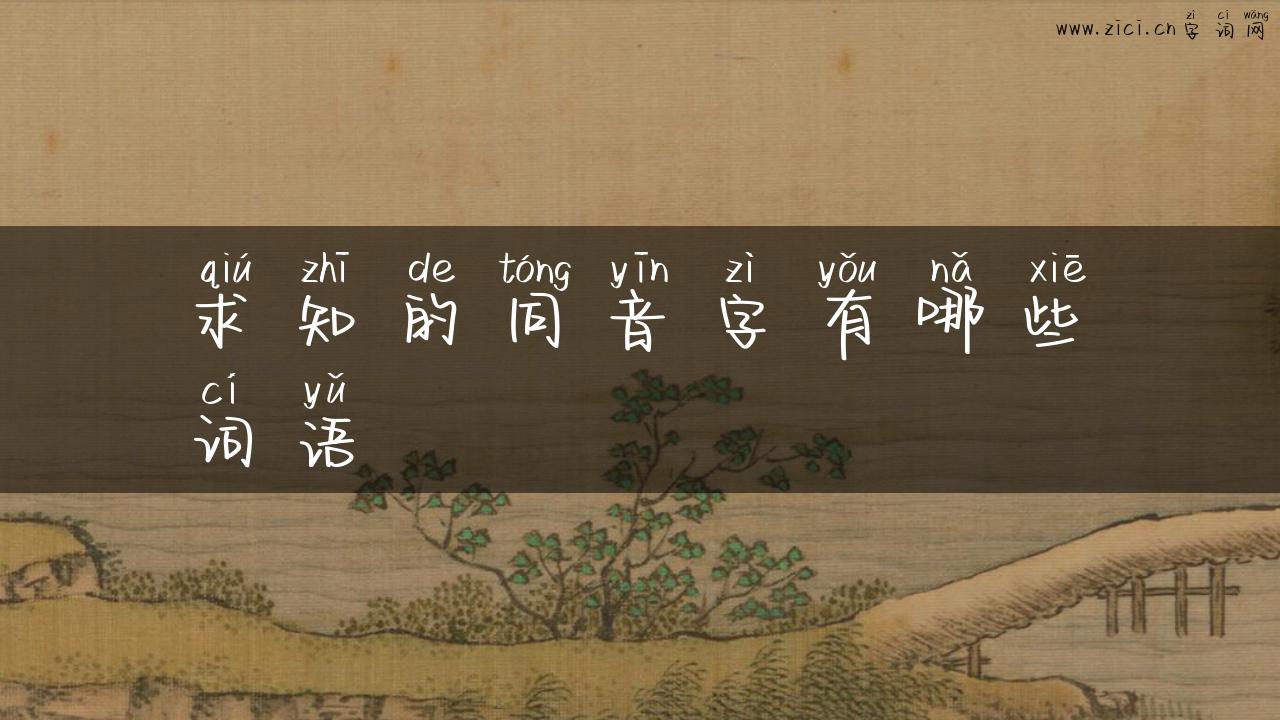 zì cí wǎng
www.zici.cn 字词网
qiú zhī de tóng yīn zì yǒu nǎ xiē
求知的同音字有哪些
cí yǔ
词语